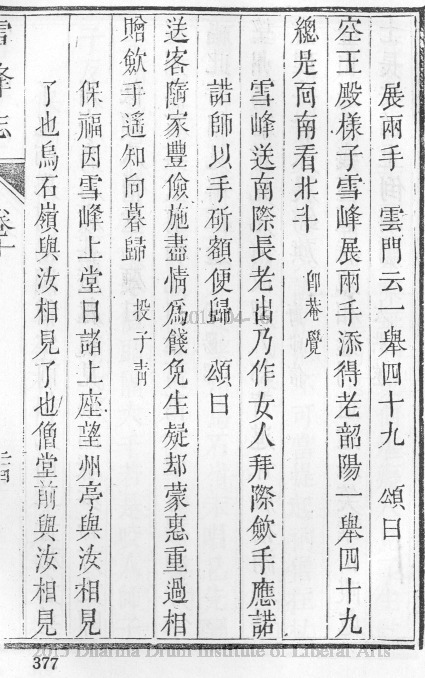 展兩手　雲門云一舉四十九　頌曰
空王殿樣子雪峰展兩手添得老韶陽一舉四十九
總是面南看北斗　卽菴覺
雪峰送南際長老出乃作女人拜際斂手應諾
諾師以手斫額便歸　頌曰
送客隨家豐儉施盡情爲餞免生疑却蒙惠重過相
贈斂手遥知向暮歸　投子青
保福因雪峰上堂曰諸上座望州亭與汝相見
了也烏石嶺與汝相見了也僧堂前與汝相見
雪峰志
377
2015 Dharma Drum Institute of Liberal Arts